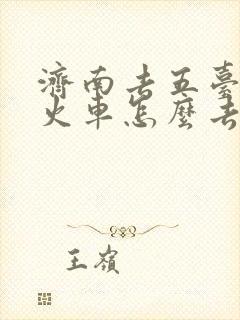 濟南去五臺
火車怎麼去
王嶺